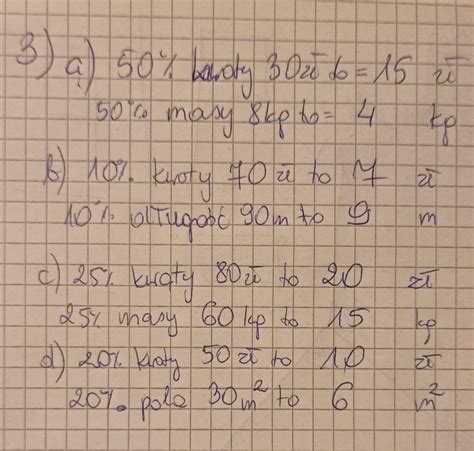 3) a) 50% kwoty 30zł to = 15 zł
50% masy 8kg to = 4 kg
b) 10% kwoty 70 zł to 7 zł
10% długość 90m to 9 m
c) 25% kwoty 80zł to 20 zł
25% masy 60kg to 15 kg
d) 20% kwoty 50zł to 10 zł
20% pola 30m² to 6 m²